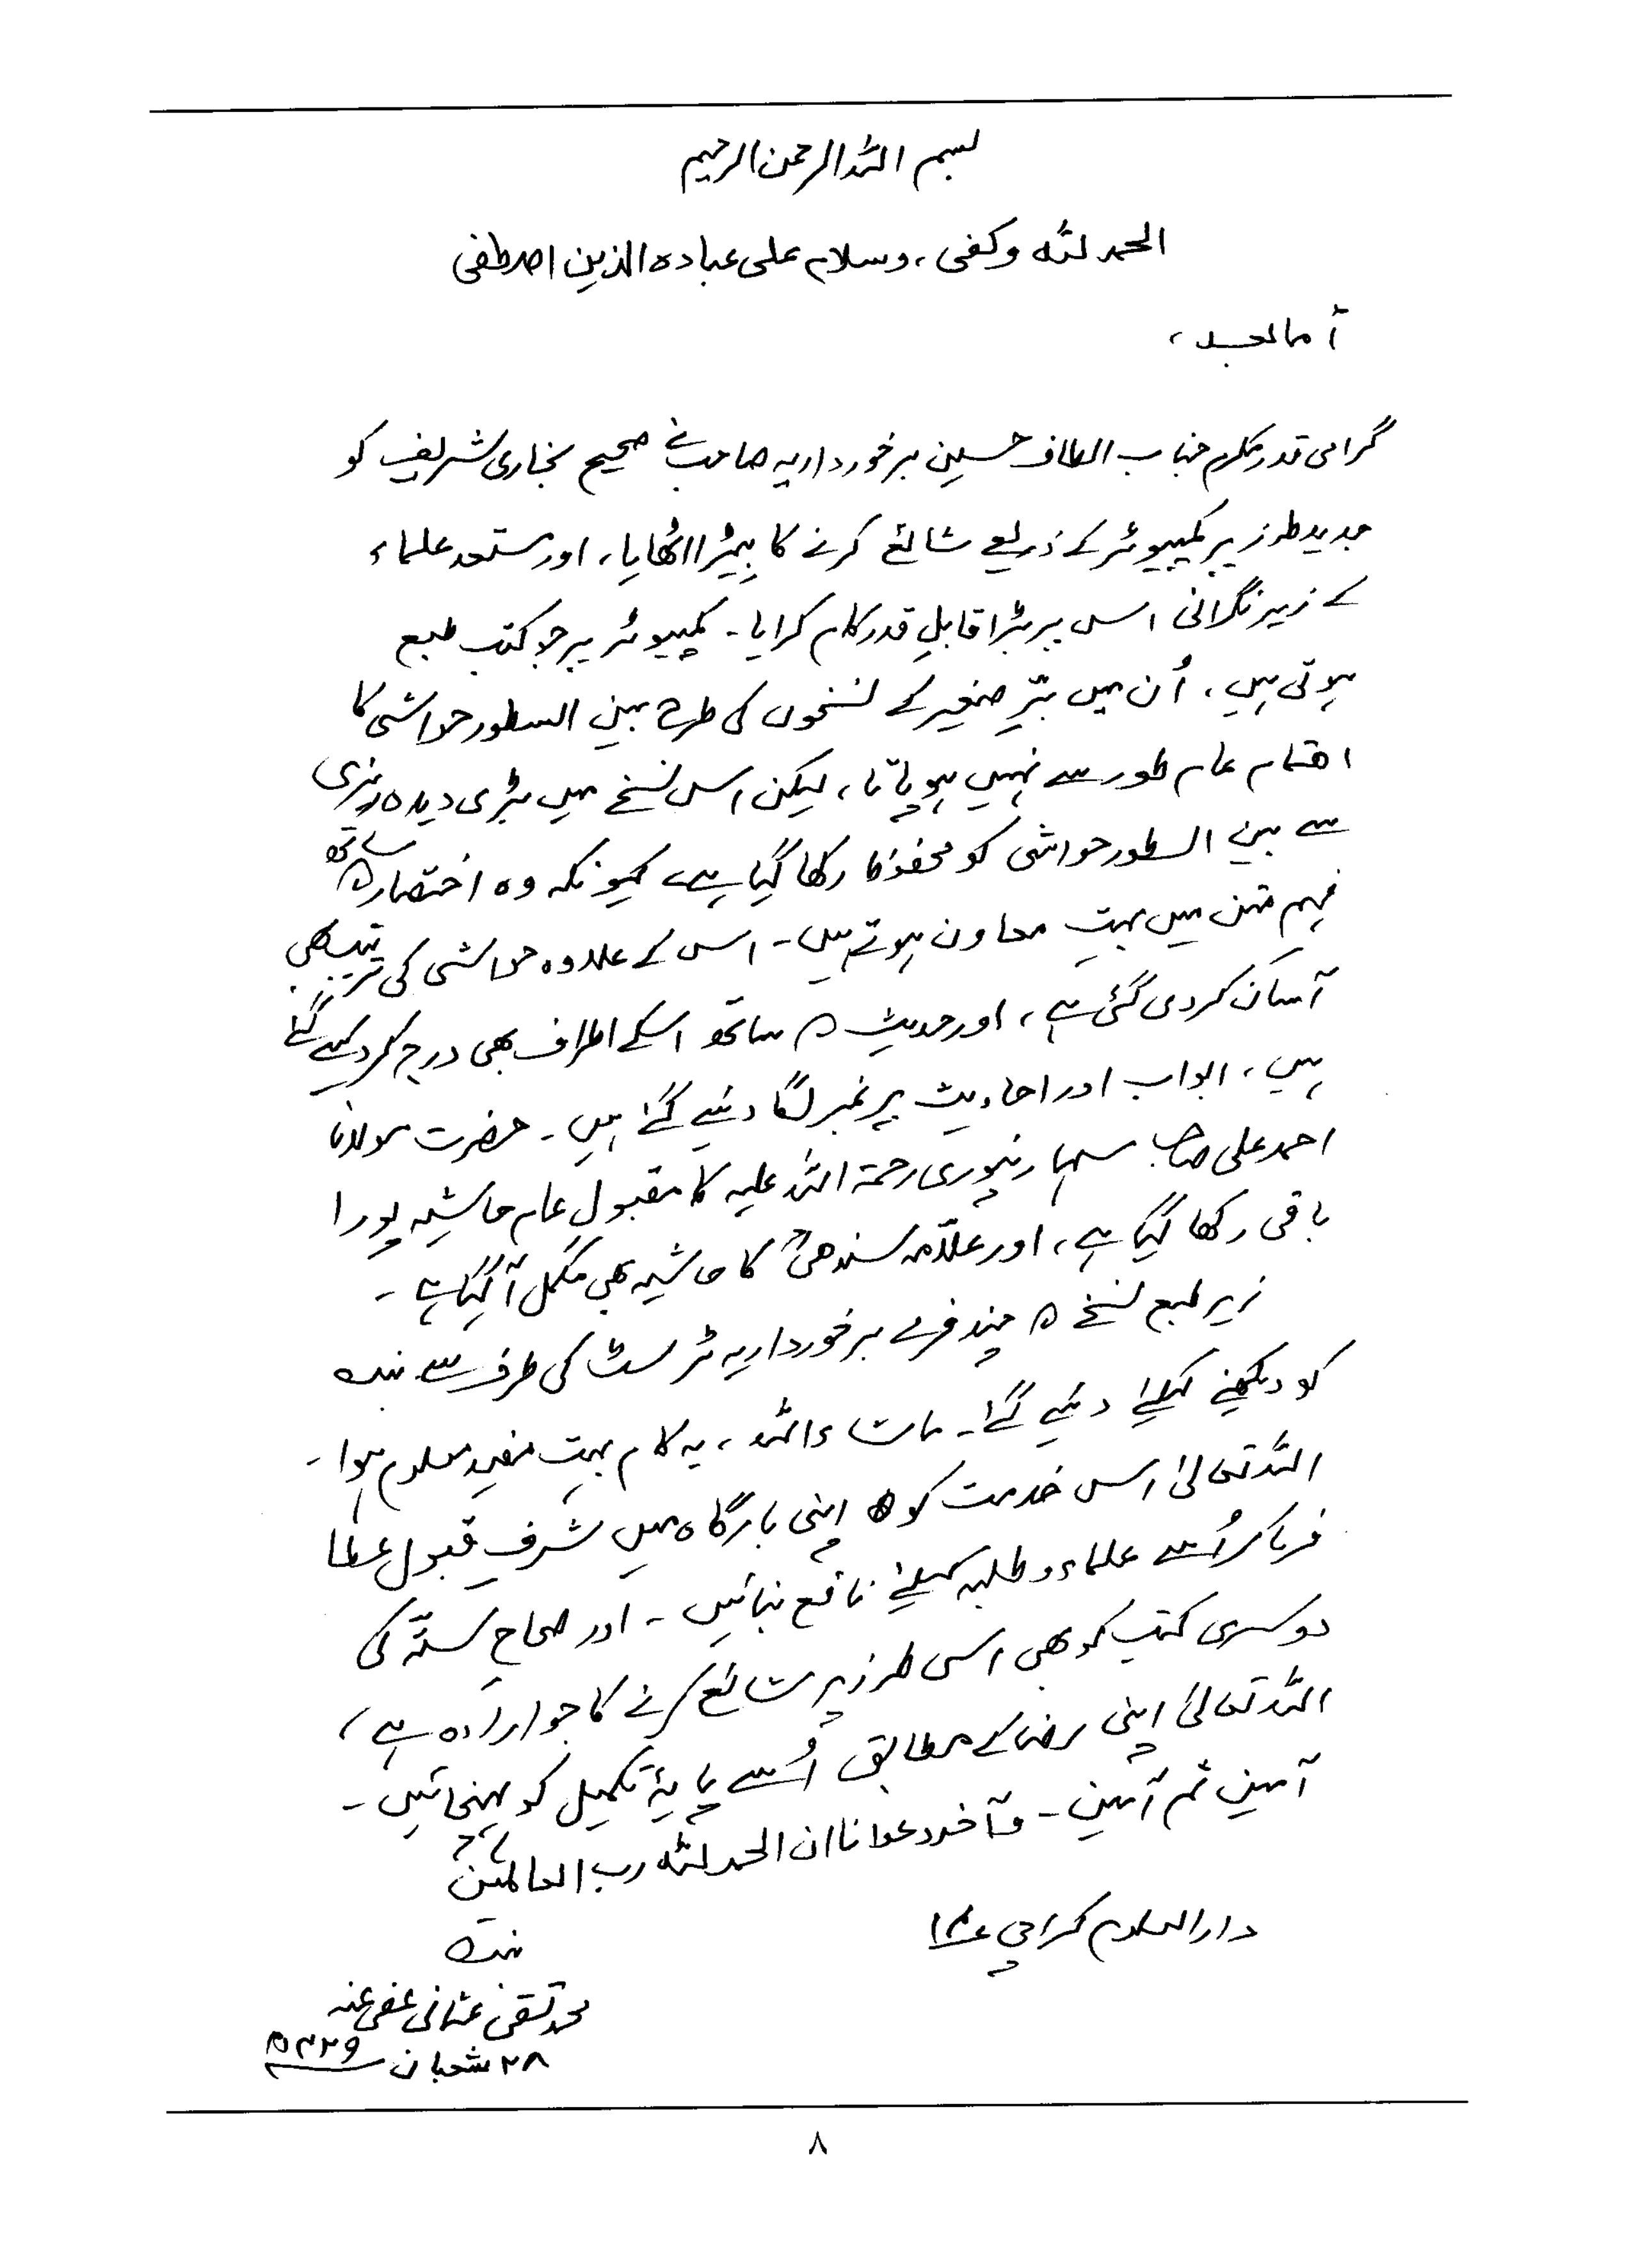 بسم اللہ الرحمن الرحیم
الحمد للہ وکفی، وسلام علی عبادہ الذین اصطفی
أما بعد،
گرامی قدر مکرم جناب الطاف حسین برخورداریہ صاحب نے صحیح بخاری شریف کو
جدید طرز پر کمپیوٹر کے ذریعے شائع کرنے کا بیڑا اٹھایا، اور مستعد علماء
کے زیر نگرانی اس پر بڑا قابلِ قدر کام کرایا۔ کمپیوٹر پر جو کتب طبع
ہوتی ہیں، اُن میں برِّ صغیر کے نسخوں کی طرح بین السطور حواشی کا
اہتمام عام طور سے نہیں ہو پاتا، لیکن اس نسخے میں بڑی دیدہ ریزی
سے بین السطور حواشی کو محفوظ رکھا گیا ہے، کیونکہ وہ اختصار کے ساتھ
فہم متن میں بہت معاون ہوتے ہیں۔ اس کے علاوہ حواشی کی ترتیب بھی
آسان کر دی گئی ہے، اور حدیث کے ساتھ اسکے اطراف بھی درج کر دئیے گئے
ہیں، ابواب اور احادیث پر نمبر لگا دئیے گئے ہیں۔ حضرت مولانا
احمد علی صاحب سہارنپوری رحمۃ اللہ علیہ کا مقبولِ عام حاشیہ پورا
باقی رکھا گیا ہے، اور علّامہ سندھیؒ کا حاشیہ بھی مکمل آ گیا ہے۔
زیر طبع نسخے کے چند فرمے برخورداریہ ٹرسٹ کی طرف سے بندہ
کو دیکھنے کیلئے دئیے گئے۔ ماشاء اللہ، یہ کام بہت مفید معلوم ہوا۔
اللہ تعالیٰ اس خدمت کو اپنی بارگاہ میں شرفِ قبول عطا
فرما کر اُسے علماء و طلبہ کیلئے نافع بنائیں۔ اور صحاحِ ستّہ کی
دوسری کتب کو بھی اسی طرز پر شائع کرنے کا جو ارادہ ہے،
اللہ تعالیٰ اپنی رضا کے مطابق اُسے پایۂ تکمیل کو پہنچائیں۔
آمین ثم آمین۔ وآخر دعوانا ان الحمد للہ رب العالمین
دارالعلوم کراچی ۱۴
بندہ
محمد تقی عثمانی عفی عنہ
۲۸ شعبان ۱۴۲۹ھ
۸